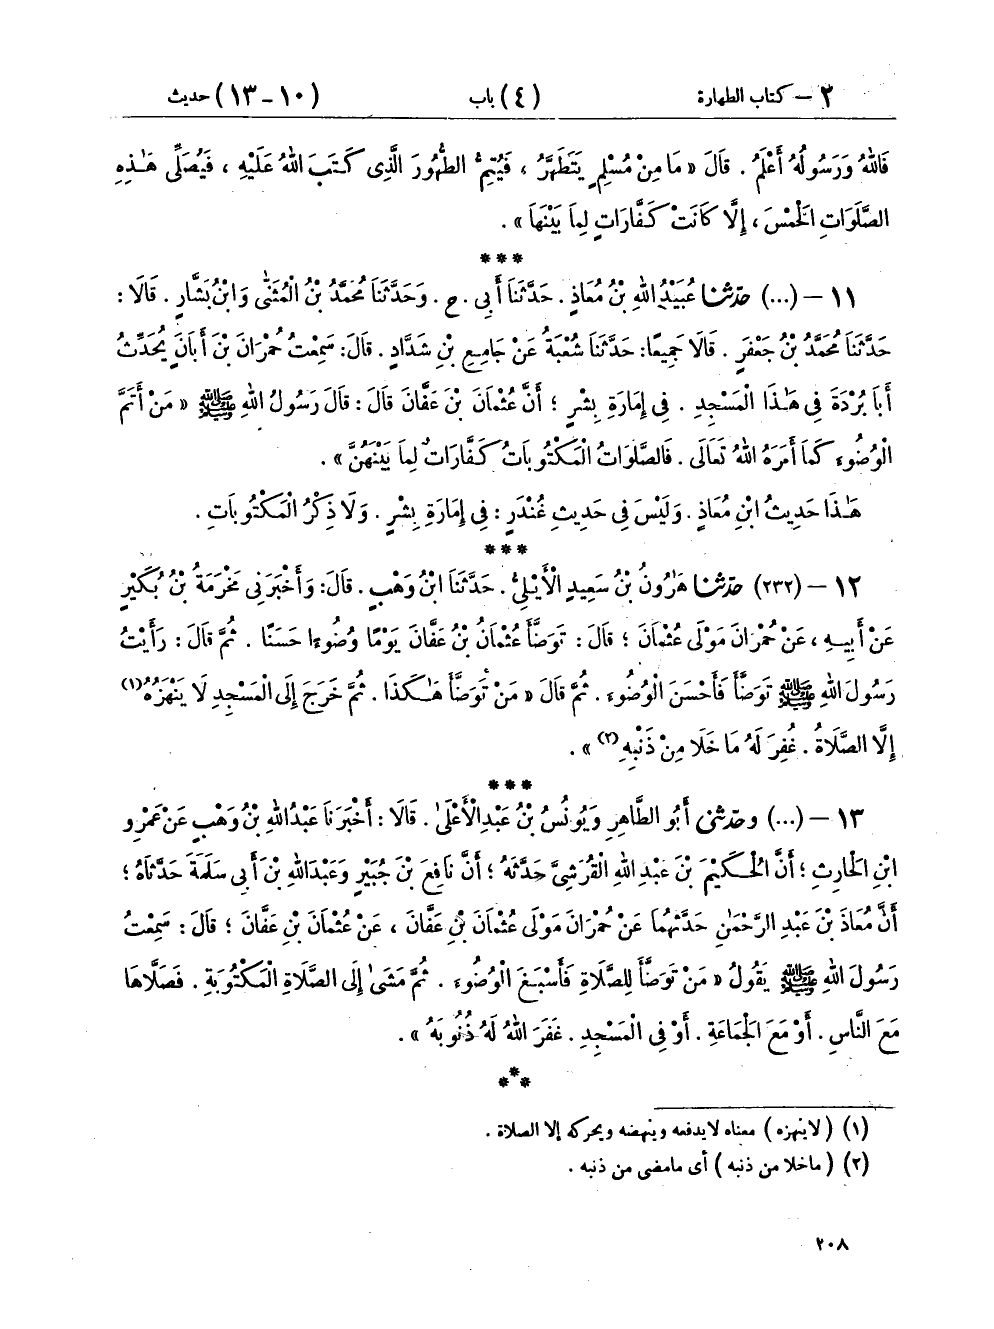 ٢ – كتاب الطهارة (٤) باب (١٠-١٣) حديث
فَاللهُ وَرَسُولُهُ أَعْلَمُ . قَالَ « مَا مِنْ مُسْلِمٍ يَتَطَهَّرُ ، فَيُتِمُّ الطُّهُورَ الَّذِى كَتَبَ اللهُ عَلَيْهِ ، فَيُصَلِّى هَٰذِهِ
الصَّلَوَاتِ الْخَمْسَ ، إِلَّا كَانَتْ كَفَّارَاتٍ لِمَا بَيْنَهَا » .
***
١١ – (...) حدّثنا عُبَيْدُ اللهِ بْنُ مُعَاذٍ . حَدَّثَنَا أَبِى . ح . وَحَدَّثَنَا مُحَمَّدُ بْنُ الْمُثَنَّى وَابْنُ بَشَّارٍ . قَالَا :
حَدَّثَنَا مُحَمَّدُ بْنُ جَعْفَرٍ . قَالَا جَمِيعًا : حَدَّثَنَا شُعْبَةُ عَنْ جَامِعِ بْنِ شَدَّادٍ . قَالَ : سَمِعْتُ حُمْرَانَ بْنَ أَبَانَ يُحَدِّثُ
أَبَا بُرْدَةَ فِى هَٰذَا الْمَسْجِدِ . فِى إِمَارَةِ بِشْرٍ ؛ أَنَّ عُثْمَانَ بْنَ عَفَّانَ قَالَ : قَالَ رَسُولُ اللهِ ﷺ « مَنْ أَتَمَّ
الْوُضُوءَ كَمَا أَمَرَهُ اللهُ تَعَالَى . فَالصَّلَوَاتُ الْمَكْتُوبَاتُ كَفَّارَاتٌ لِمَا بَيْنَهُنَّ » .
هَٰذَا حَدِيثُ ابْنِ مُعَاذٍ . وَلَيْسَ فِى حَدِيثِ غُنْدَرٍ : فِى إِمَارَةِ بِشْرٍ . وَلَا ذِكْرُ الْمَكْتُوبَاتِ .
***
١٢ – (٢٣٢) حدّثنا هَٰرُونُ بْنُ سَعِيدٍ الْأَيْلِىُّ . حَدَّثَنَا ابْنُ وَهْبٍ . قَالَ : وَأَخْبَرَنِى مَخْرَمَةُ بْنُ بُكَيْرٍ
عَنْ أَبِيهِ ، عَنْ حُمْرَانَ مَوْلَى عُثْمَانَ ؛ قَالَ : تَوَضَّأَ عُثْمَانُ بْنُ عَفَّانَ يَوْمًا وُضُوءًا حَسَنًا . ثُمَّ قَالَ : رَأَيْتُ
رَسُولَ اللهِ ﷺ تَوَضَّأَ فَأَحْسَنَ الْوُضُوءَ . ثُمَّ قَالَ « مَنْ تَوَضَّأَ هَٰكَذَا . ثُمَّ خَرَجَ إِلَى الْمَسْجِدِ لَا يَنْهَزُهُ(١)
إِلَّا الصَّلَاةُ . غُفِرَ لَهُ مَا خَلَا مِنْ ذَنْبِهِ(٢) » .
***
١٣ – (...) وحدّثنى أَبُو الطَّاهِرِ وَيُونُسُ بْنُ عَبْدِ الْأَعْلَىٰ . قَالَا : أَخْبَرَنَا عَبْدُ اللهِ بْنُ وَهْبٍ عَنْ عَمْرِو
ابْنِ الْحَارِثِ ؛ أَنَّ الْحَكِيمَ بْنَ عَبْدِ اللهِ الْقُرَشِىَّ حَدَّثَهُ ؛ أَنَّ نَافِعَ بْنَ جُبَيْرٍ وَعَبْدَ اللهِ بْنَ أَبِى سَلَمَةَ حَدَّثَاهُ ؛
أَنَّ مُعَاذَ بْنَ عَبْدِ الرَّحْمَٰنِ حَدَّثَهُمَا عَنْ حُمْرَانَ مَوْلَى عُثْمَانَ بْنِ عَفَّانَ ، عَنْ عُثْمَانَ بْنِ عَفَّانَ ؛ قَالَ : سَمِعْتُ
رَسُولَ اللهِ ﷺ يَقُولُ « مَنْ تَوَضَّأَ لِلصَّلَاةِ فَأَسْبَغَ الْوُضُوءَ . ثُمَّ مَشَىٰ إِلَى الصَّلَاةِ الْمَكْتُوبَةِ . فَصَلَّاهَا
مَعَ النَّاسِ . أَوْ مَعَ الْجَمَاعَةِ . أَوْ فِى الْمَسْجِدِ . غَفَرَ اللهُ لَهُ ذُنُوبَهُ » .
***
(١) ( لاينهزه ) معناه لايدفعه وينهضه ويحركه إلا الصلاة .
(٢) ( ماخلا من ذنبه ) أى مامضى من ذنبه .
٢٠٨